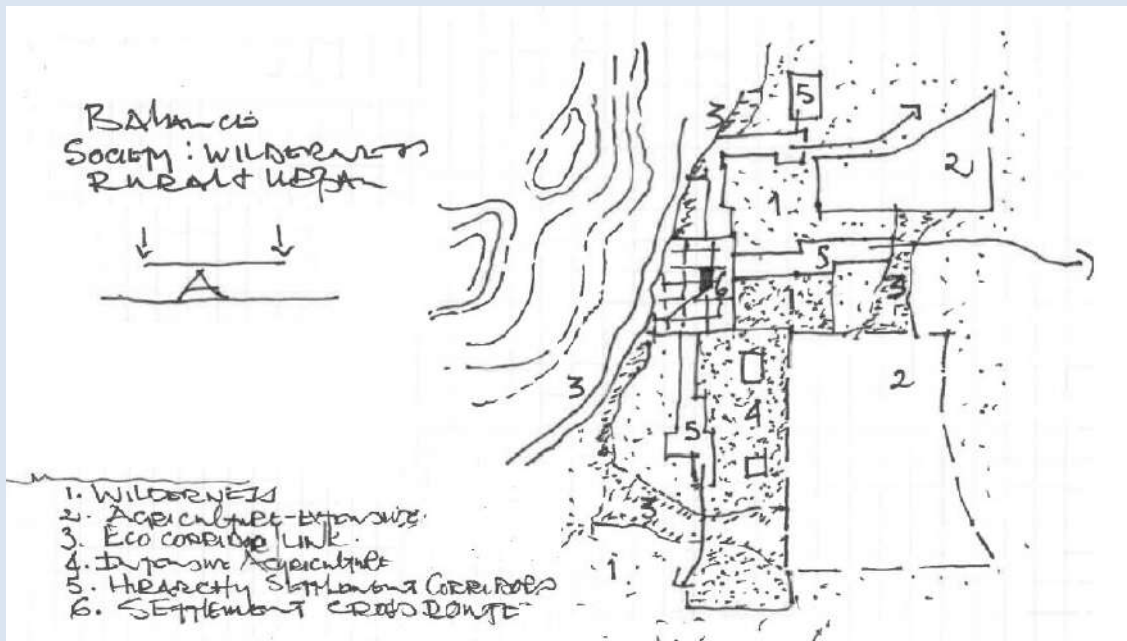 BALANCE
SOCIETY: WILDERNESS
RURAL & URBAN
1. WILDERNESS
2. AGRICULTURE-EXTENSIVE
3. ECO CORRIDOR LINK.
4. INTENSIVE AGRICULTURE
5. HIRARCHY SETTLEMENT CORRIDORS
6. SETTLEMENT
5
3
2
1
5
6
3
3
2
4
5
3
1